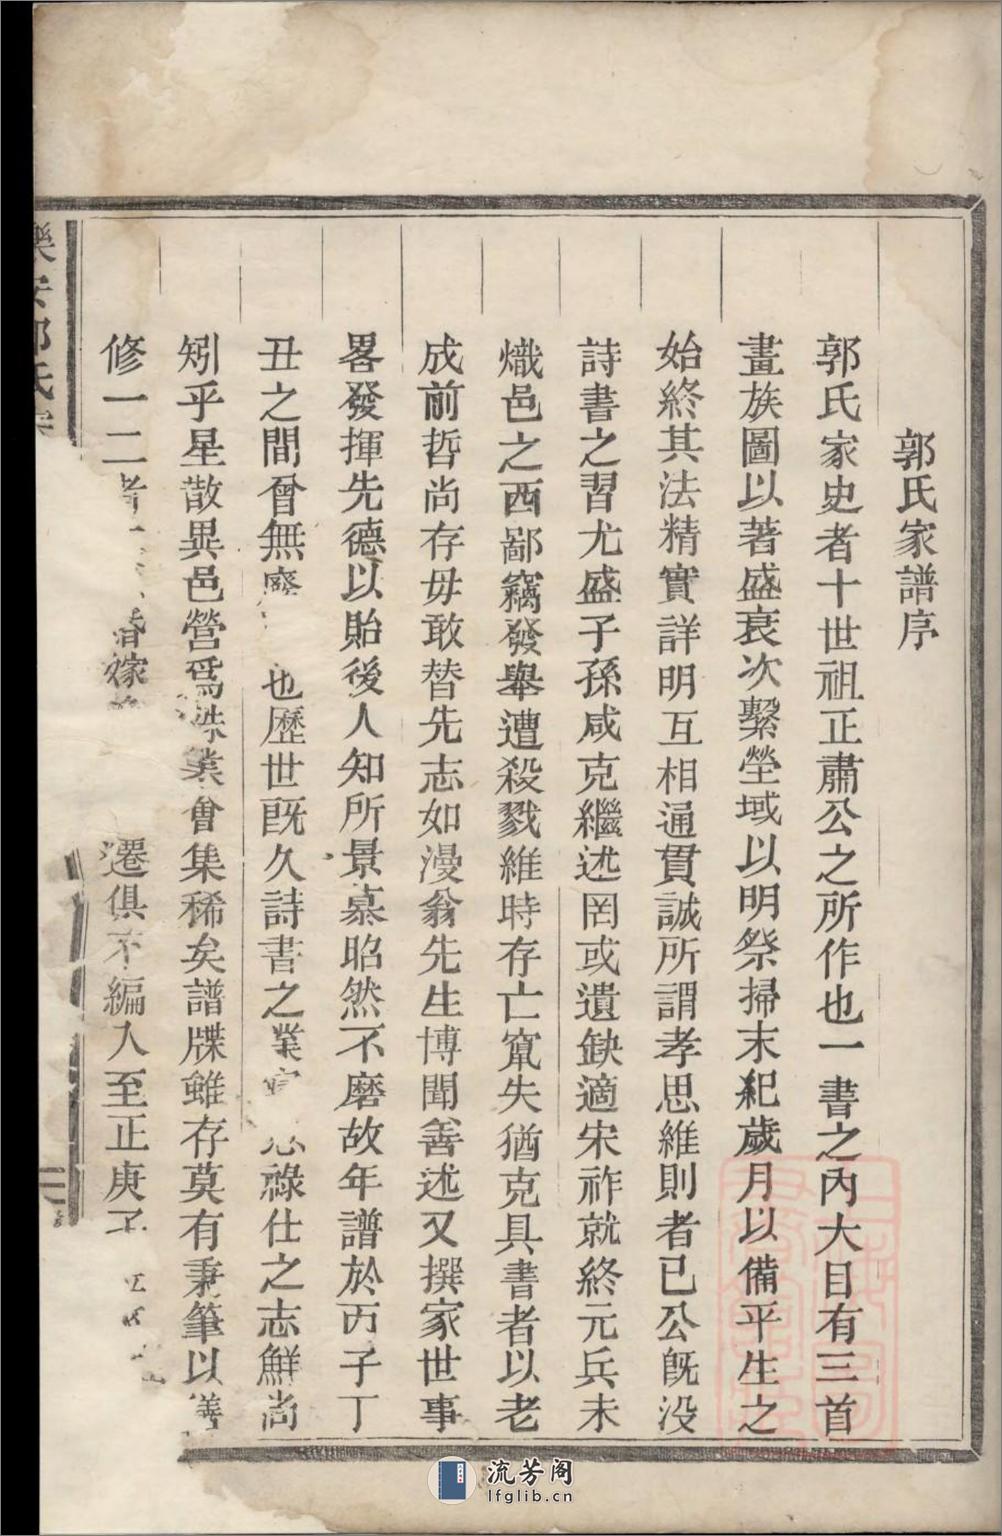 郭氏家譜序
郭氏家史者十世祖正肅公之所作也一書之內大目有三首
畫族圖以著盛衰次繫塋域以明祭掃末紀歲月以備平生之
始終其法精實詳明互相通貫誠所謂孝思維則者已公旣没
詩書之習尤盛子孫咸克繼述罔或遺缺適宋祚就終元兵未
熾邑之西鄙竊發舉遭殺戮維時存亡竄失猶克具書者以老
成前哲尚存毋敢替先志如漫翁先生博聞善述又撰家世事
畧發揮先德以貽後人知所景慕昭然不磨故年譜於丙子丁
丑之間曾無 也歷世旣久詩書之業 祿仕之志鮮尚
矧乎星散異邑營爲 業會集稀矣譜牒雖存莫有秉筆以
修一二者 嫁 遷俱不編入至正庚子
樂安郭氏宗
流芳阁
lfglib.cn